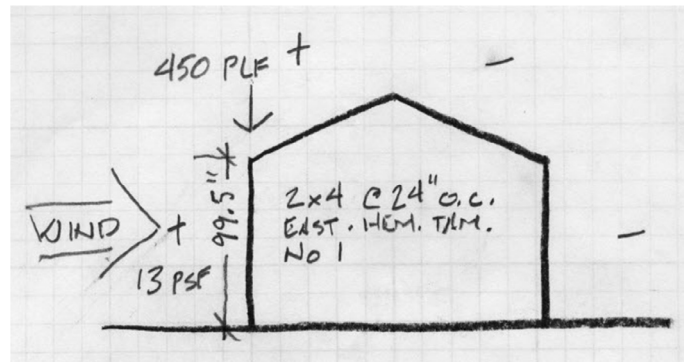 450 PLF +
-
WIND
+
13 PSF
99.5"
2x4 @ 24" O.C.
EAST. HEM. TAM.
NO 1
-